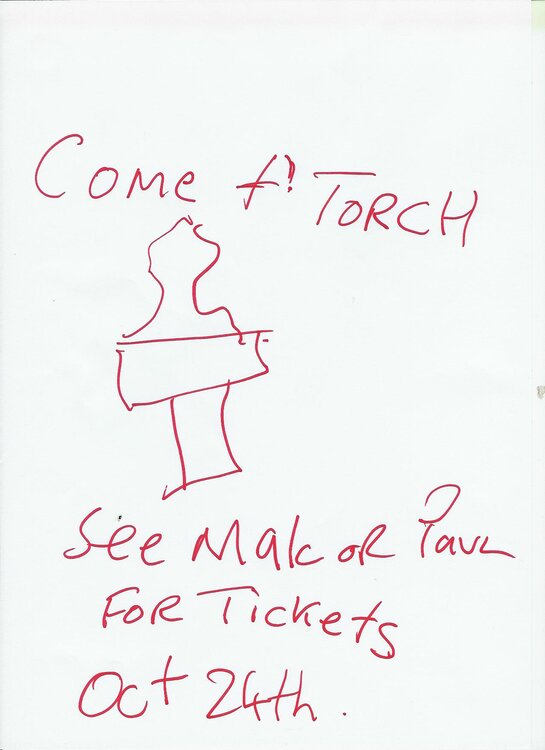 Come t' TORCH
See Malc or Paul
FOR Tickets
Oct 24th.